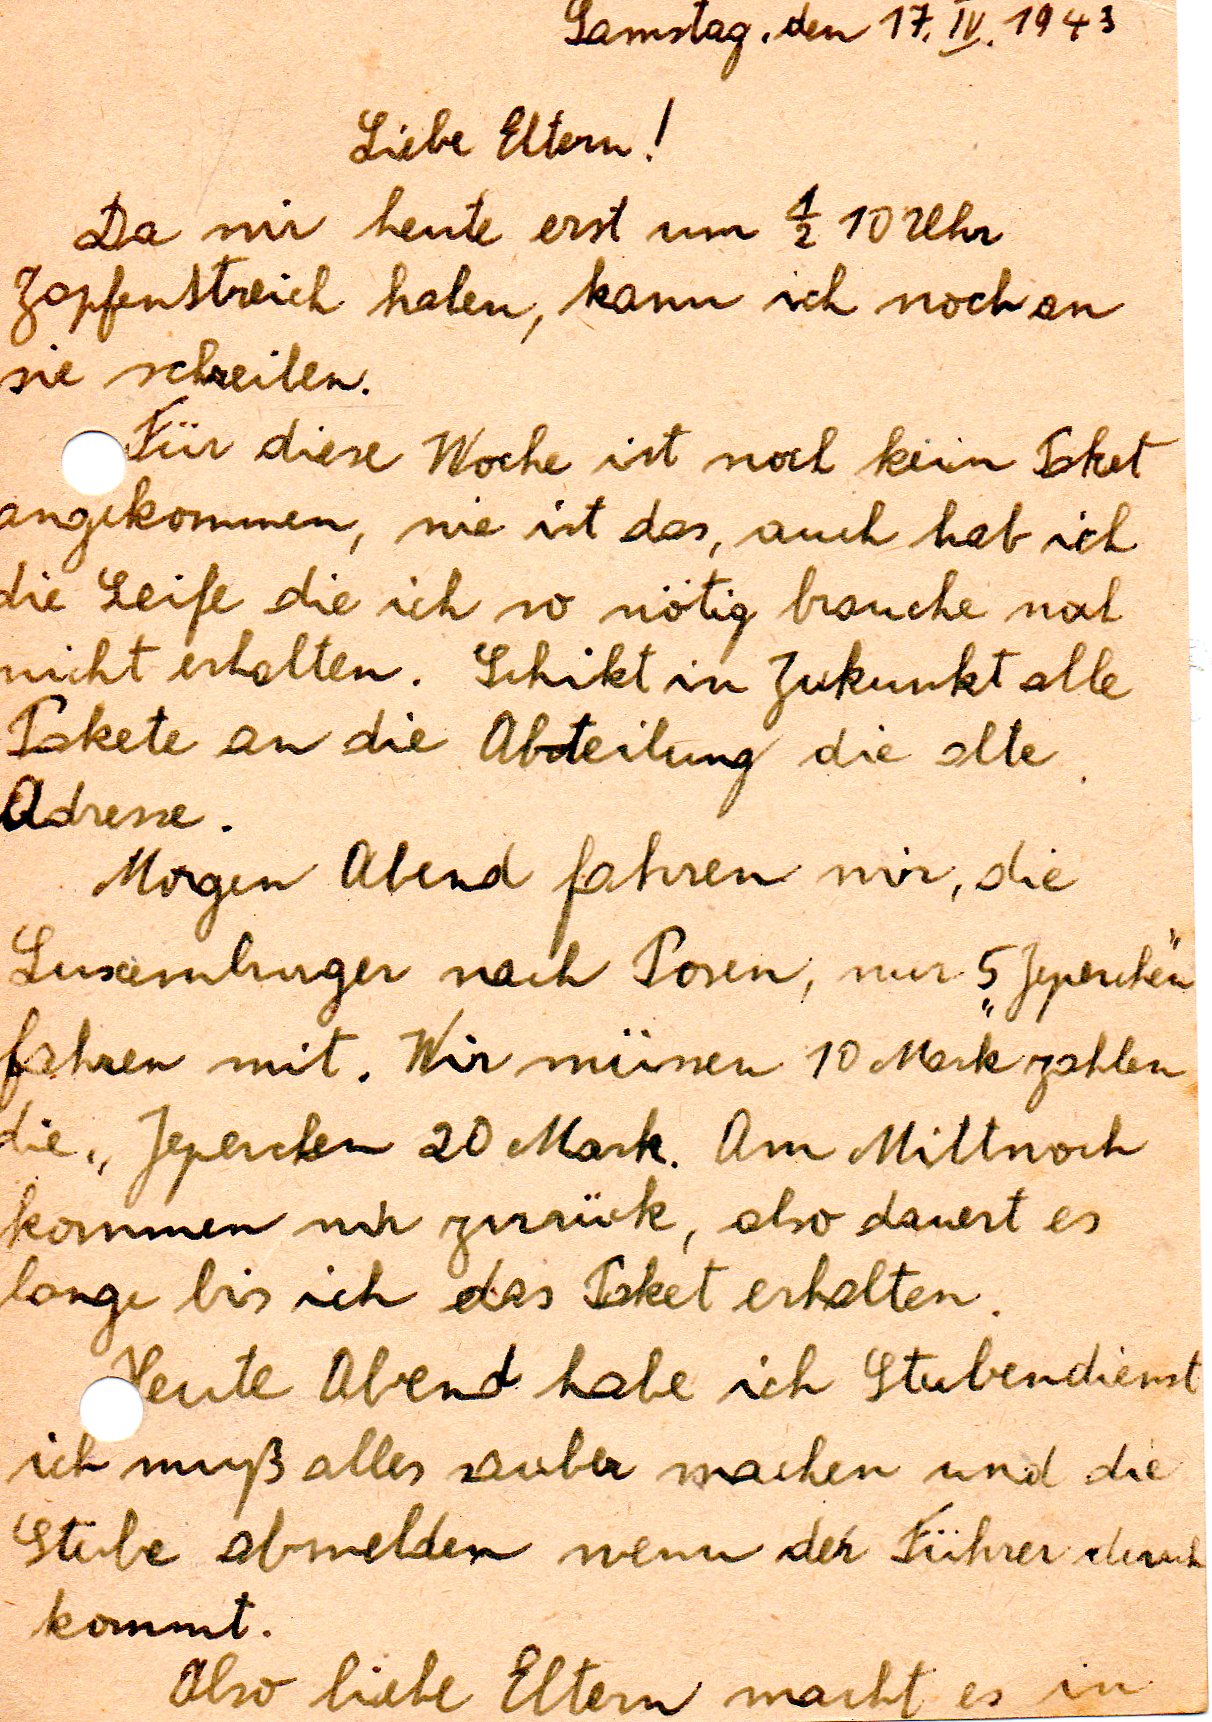 Samstag, den 17. IV. 1943
Liebe Eltern!
Da wir heute erst um 1/2 10 Uhr
Zapfenstreich haben, kann ich noch an
sie schreiben.
Für diese Woche ist noch kein Paket
angekommen, wie ist das, auch hab ich
die Seife die ich so nötig brauche noch
nicht erhalten. Schikt in Zukunkt alle
Pakete an die Abteilung die alte
Adresse.
Morgen Abend fahren wir, die
Luxemburger nach Posen, nur 5 „Jeperchen"
fahren mit. Wir müssen 10 Mark zahlen
die „Jeperchen 20 Mark. Am Mittwoch
kommen wir zurück, also dauert es
lange bis ich das Paket erhalten.
Heute Abend habe ich Stubendienst
ich muß alles sauber machen und die
Stube abmelden wenn der Führer durch
kommt.
Also liebe Eltern macht es in